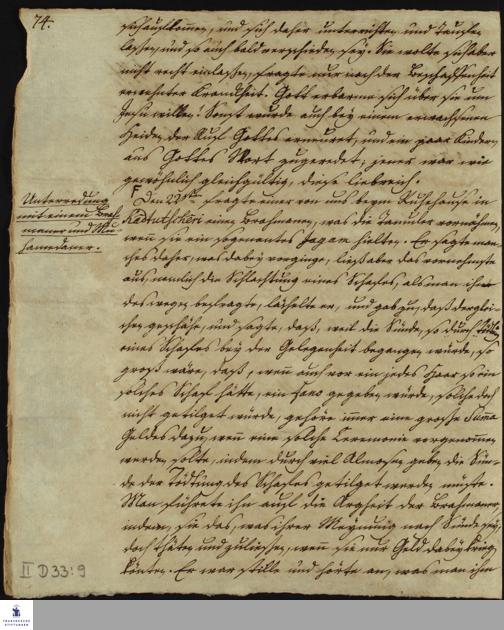 74.
sich auskommen, und sich daher unterrichten und taufen
lassen, und so auch bald verschieden sey. Sie wolte sich aber
nicht recht einlassen, fragte nur nach der Beschaffenheit
erwehnter Kranckheit. Gott erbarme sich über sie um
Jesu willen! Sonst wurde auch bey einem erwachsenen
Heiden der Ruf Gottes erneuret, und ein paar Kindern
aus Gottes Wort zugeredet, jener war wie
gewöhnlich gleichgültig, diese liebreich.
Unterredung
mit einem Brah-
maner und Mu-
hamedaner.
Den 22sten fragte einer von uns beym Ruhehause in
einen Brahmanen, was die Tamuler vornähmen,
wen sie ein sogenentes Jagam hielten. Er sagte man-
ches daher, was dabey vorginge, ließ aber das vornehmste
aus, nemlich die Schlachtung eines Schafes, als man ihn
deswegen befragte, lächelte er, und gab zu, daß derglei-
chen geschähe, und sagte, daß, weil die Sünde, so durch
eines Schafes bey der Gelegenheit begangen würde, so
groß wäre, daß, wenn auch vor ein jedes Haar so ein
solches Schaf hätte, ein Fano gegeben würde, solche doch
nicht getilget würde, gehöre imer eine große Summa
Geldes dazu, wen eine solche Ceremonie vorgenommen
werden solte, indem durch viel Almosen geben die Sün-
de der Tödtung des Schafes getilget werden müste.
Man führete ihn auf die Argheit der Brahmaner,
indem, sie das, was ihrer Meynung nach Sünde sey,
doch thäten und zuließen, wenn sie nur Geld dabey
könten. Er war stille und hörte an, was man ihm
II D 33:9
FRANCKESCHE
STIFTUNGEN